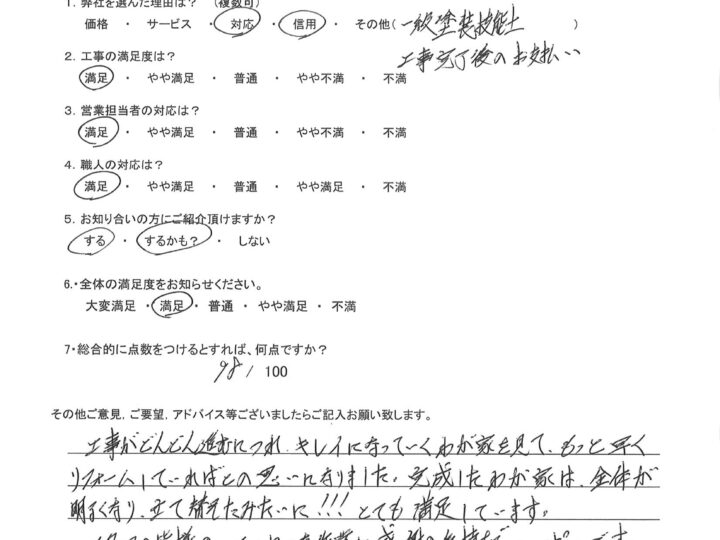 1. 弊社を選んだ理由は？ （複数可）
価格 ・ サービス ・ 対応 ・ 信用 ・ その他( 一級塗装技能士 )
工事完了後のお支払い
2. 工事の満足度は？
満足 ・ やや満足 ・ 普通 ・ やや不満 ・ 不満
3. 営業担当者の対応は？
満足 ・ やや満足 ・ 普通 ・ やや不満 ・ 不満
4. 職人の対応は？
満足 ・ やや満足 ・ 普通 ・ やや満足 ・ 不満
5. お知り合いの方にご紹介頂けますか？
する ・ するかも？ ・ しない
6.・全体の満足度をお知らせください。
大変満足 ・ 満足 ・ 普通 ・ やや満足 ・ 不満
7・総合的に点数をつけるとすれば、何点ですか？
98 / 100
その他ご意見, ご要望, アドバイス等ございましたらご記入お願い致します。
工事がどんどん進むにつれ、キレイになっていくわが家を見て、もっと早く
リフォームしていればとの思いになりました。完成したわが家は、全体が
明るくなり、立て替えたみたいに!!! とても満足しています。